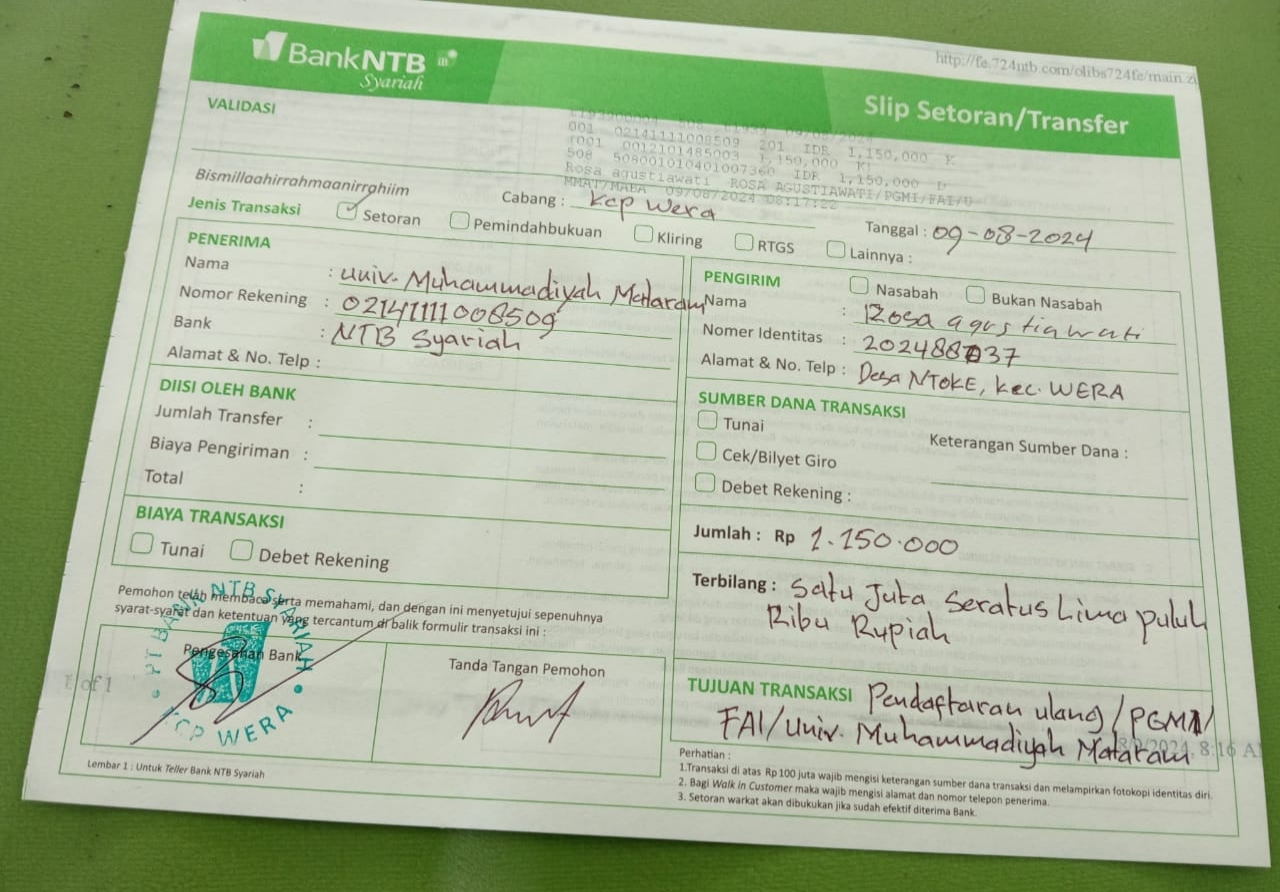 http://fe.724ntb.com/olibs724fe/main.z
BankNTB
Syariah
Slip Setoran/Transfer
VALIDASI
001 02141111008509 201 IDR 1,150,000 K
r001 0012101485003 1,150,000 K
508 508001010401007360 IDR 1,150,000 D
Rosa agustiawati ROSA AGUSTIAWATI/PGMI/FAI/U
09/08/2024 08:17:22
Bismillaahirrahmaanirrahiim
Cabang : Kcp Wera
Tanggal : 09-08-2024
Jenis Transaksi Setoran Pemindahbukuan Kliring RTGS Lainnya :
PENERIMA
Nama : Univ. Muhammadiyah Mataram
Nomor Rekening : 02141111008509
Bank : NTB Syariah
Alamat & No. Telp :
PENGIRIM Nasabah Bukan Nasabah
Nama : Rosa agustiawati
Nomer Identitas : 202488037
Alamat & No. Telp : Desa NTOKE, kec. WERA
DIISI OLEH BANK
Jumlah Transfer :
Biaya Pengiriman :
Total :
SUMBER DANA TRANSAKSI
Tunai
Keterangan Sumber Dana :
Cek/Bilyet Giro
Debet Rekening :
BIAYA TRANSAKSI
Tunai Debet Rekening
Jumlah : Rp 1.150.000
Terbilang : Satu Juta Seratus Lima puluh
Ribu Rupiah
Pemohon telah membaca serta memahami, dan dengan ini menyetujui sepenuhnya
syarat-syarat dan ketentuan yang tercantum di balik formulir transaksi ini :
Pengesahan Bank
PT BANK NTB SYARIAH
KCP WERA
Tanda Tangan Pemohon
1 of 1
TUJUAN TRANSAKSI Pendaftaran ulang/PGMI/
FAI/Univ. Muhammadiyah Mataram
8/9/2024, 8:16 A
Lembar 1 : Untuk Teller Bank NTB Syariah
Perhatian :
1.Transaksi di atas Rp 100 juta wajib mengisi keterangan sumber dana transaksi dan melampirkan fotokopi identitas diri.
2. Bagi Walk in Customer maka wajib mengisi alamat dan nomor telepon penerima.
3. Setoran warkat akan dibukukan jika sudah efektif diterima Bank.